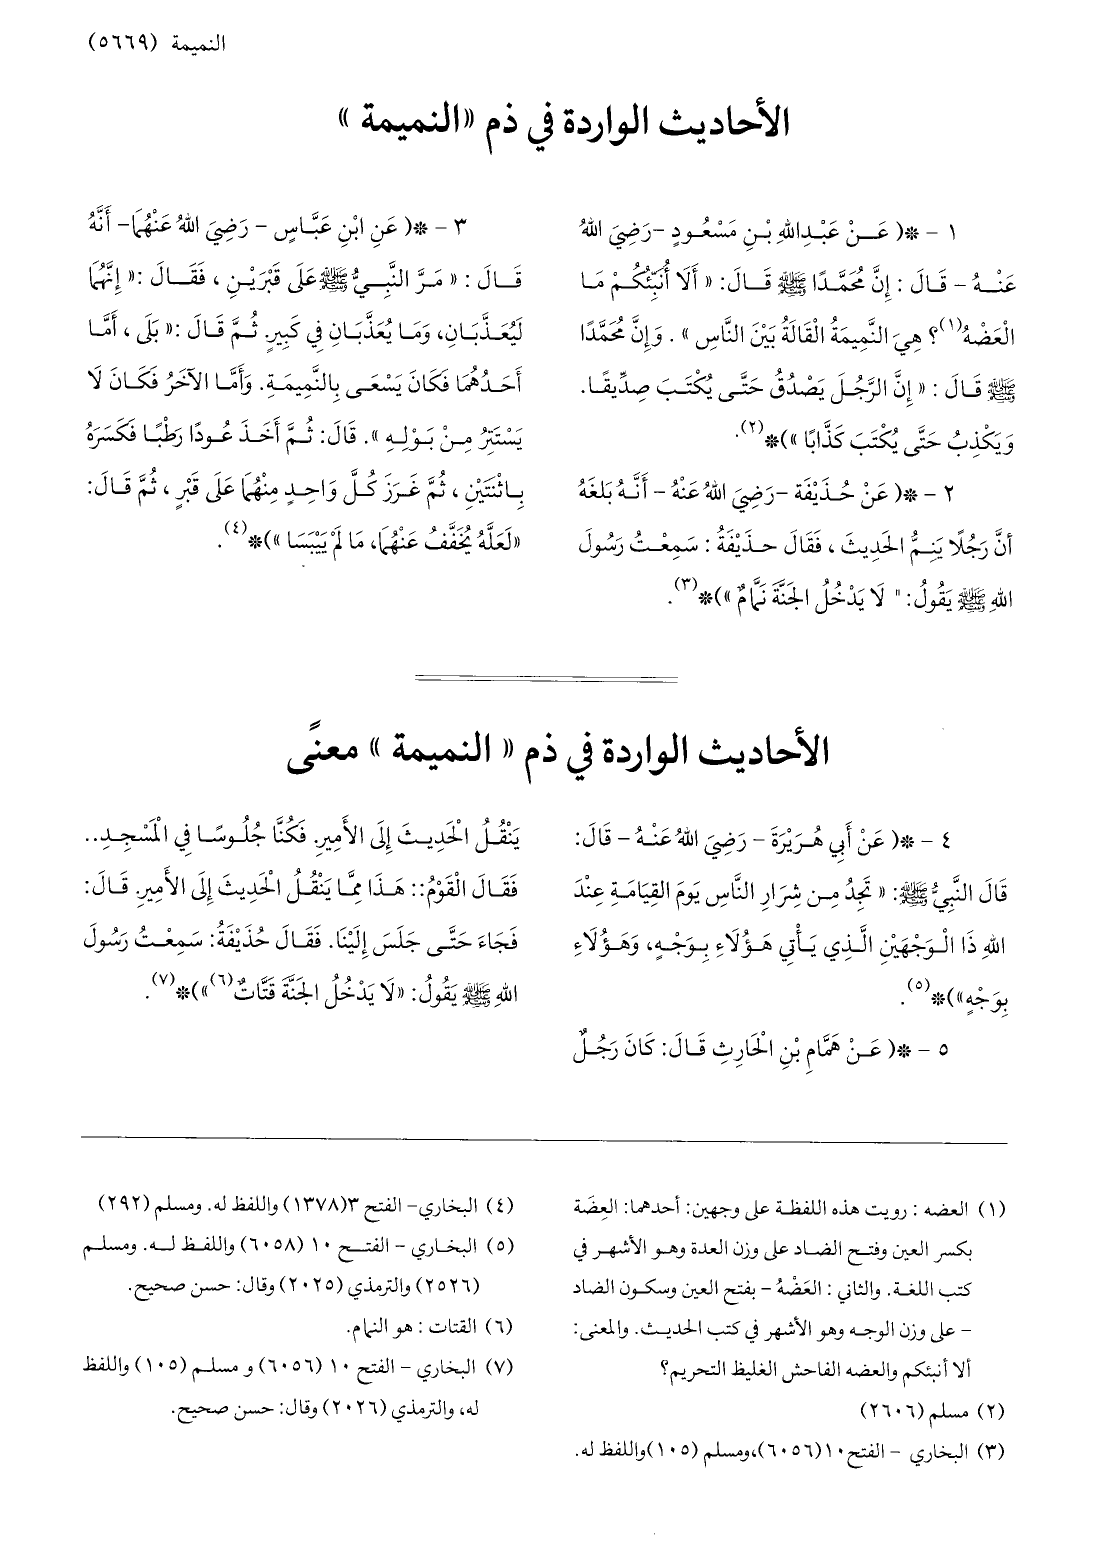 النميمة (٥٦٦٩)
الأحاديث الواردة في ذم «النميمة »
١ - *( عَـــنْ عَبْـدِاللهِ بْـنِ مَسْعُـودٍ -رَضِيَ اللهُ
عَنْـهُ - قَـالَ : إِنَّ مُحَمَّدًا ﷺ قَـالَ: « أَلَا أُنَبِّئُكُمْ مَـا
الْعَضْهُ(١)؟ هِيَ النَّمِيمَةُ الْقَالَةُ بَيْنَ النَّاسِ » . وَإِنَّ مُحَمَّدًا
ﷺ قَـالَ : « إِنَّ الرَّجُلَ يَصْدُقُ حَتَّـى يُكْتَـبَ صِدِّيقًـا.
وَيَكْذِبُ حَتَّى يُكْتَبَ كَذَّابًا »)*(٢).
٢ - *( عَنْ حُـذَيْفَة -رَضِيَ اللهُ عَنْهُ - أَنَّـهُ بَلَغَهُ
أَنَّ رَجُلًا يَنِـمُّ الحَدِيثَ ، فَقَالَ حـذَيْفَةُ : سَمِعْـتُ رَسُولَ
اللهِ ﷺ يَقُولُ: " لَا يَدْخُلُ الجَنَّةَ نَمَّامٌ »)*(٣).
٣ - *( عَنِ ابْنِ عَبَّـاسٍ - رَضِيَ اللهُ عَنْهُمَا- أَنَّهُ
قَـالَ : « مَـرَّ النَّبِـيُّ ﷺ عَلَى قَبْرَيْـنِ ، فَقَـــالَ :« إِنَّهُمَا
لَيُعَـذَّبَـانِ، وَمَـا يُعَذَّبَانِ فِي كَبِيرٍ. ثُـمَّ قَـالَ :« بَلَى ، أَمَّـا
أَحَـدُهُمَا فَكَانَ يَسْعَـى بِالنَّمِيمَـةِ. وَأَمَّـا الآخَرُ فَكَـانَ لَا
يَسْتَتِرُ مِـنْ بَـوْلِـهِ ». قَالَ: ثُـمَّ أَخَـذَ عُـودًا رَطْبًـا فَكَسَرَهُ
بِـاثْنَتَيْنِ ، ثُمَّ غَـرَزَ كُـلَّ وَاحِـدٍ مِنْهُمَا عَلَى قَبْرٍ ، ثُمَّ قَالَ:
«لَعَلَّهُ يُخَفَّفُ عَنْهُمَا، مَا لَمْ يَيْبَسَا »)*(٤).
الأحاديث الواردة في ذم « النميمة » معنًى
٤ - *( عَنْ أَبِي هُـرَيْرَةَ - رَضِيَ اللهُ عَنْـهُ - قَالَ:
قَالَ النَّبِيُّ ﷺ: « تَجِدُ مِـن شِرَارِ النَّاسِ يَومَ القِيَامَـةِ عِنْدَ
اللهِ ذَا الْـوَجْهَيْنِ الَّـذِي يَـأْتِي هَـؤُلَاءِ بِـوَجْـهٍ، وَهَـؤُلَاءِ
بِوَجْهٍ»)*(٥).
٥ - *( عَـنْ هَمَّامِ بْنِ الْحَارِثِ قَـالَ: كَانَ رَجُـلٌ
يَنْقُـلُ الْحَدِيـثَ إِلَى الأَمِيرِ. فَكُنَّا جُلُـوسًـا فِي الْمَسْجِـدِ..
فَقَـالَ الْقَوْمُ:: هَـذَا مِمَّـا يَنْقُلُ الْحَدِيثَ إِلَى الأَمِيرِ. قَـالَ:
فَجَاءَ حَتَّـى جَلَسَ إِلَيْنَا. فَقَـالَ حُذَيْفَةُ: سَمِعْـتُ رَسُولَ
اللهِ ﷺ يَقُولُ: «لَا يَدْخُلُ الجَنَّةَ قَتَّاتٌ(٦)»)*(٧).
(١) العضه : رويت هذه اللفظـة على وجهين: أحدهما: العِضَة
بكسر العين وفتـح الضـاد على وزن العدة وهـو الأشهـر في
كتب اللغـة. والثاني : العَضْهُ - بفتح العين وسكـون الضاد
- على وزن الوجـه وهو الأشهر في كتب الحديـث. والمعنى:
ألا أنبئكم والعضه الفاحش الغليظ التحريم؟
(٢) مسلم (٢٦٠٦)
(٣) البخاري - الفتح ١٠(٦٠٥٦)،ومسلم (١٠٥)واللفظ له.
(٤) البخاري- الفتح ٣(١٣٧٨) واللفظ له. ومسلم (٢٩٢)
(٥) البخـاري - الفتـــح ١٠ (٦٠٥٨) واللفـظ لــه. ومسلـم
(٢٥٢٦) والترمذي (٢٠٢٥) وقال: حسن صحيح.
(٦) القتات : هو النمام.
(٧) البخاري - الفتح ١٠ (٦٠٥٦) و مسلـم (١٠٥) واللفظ
له، والترمذي (٢٠٢٦) وقال: حسن صحيح.